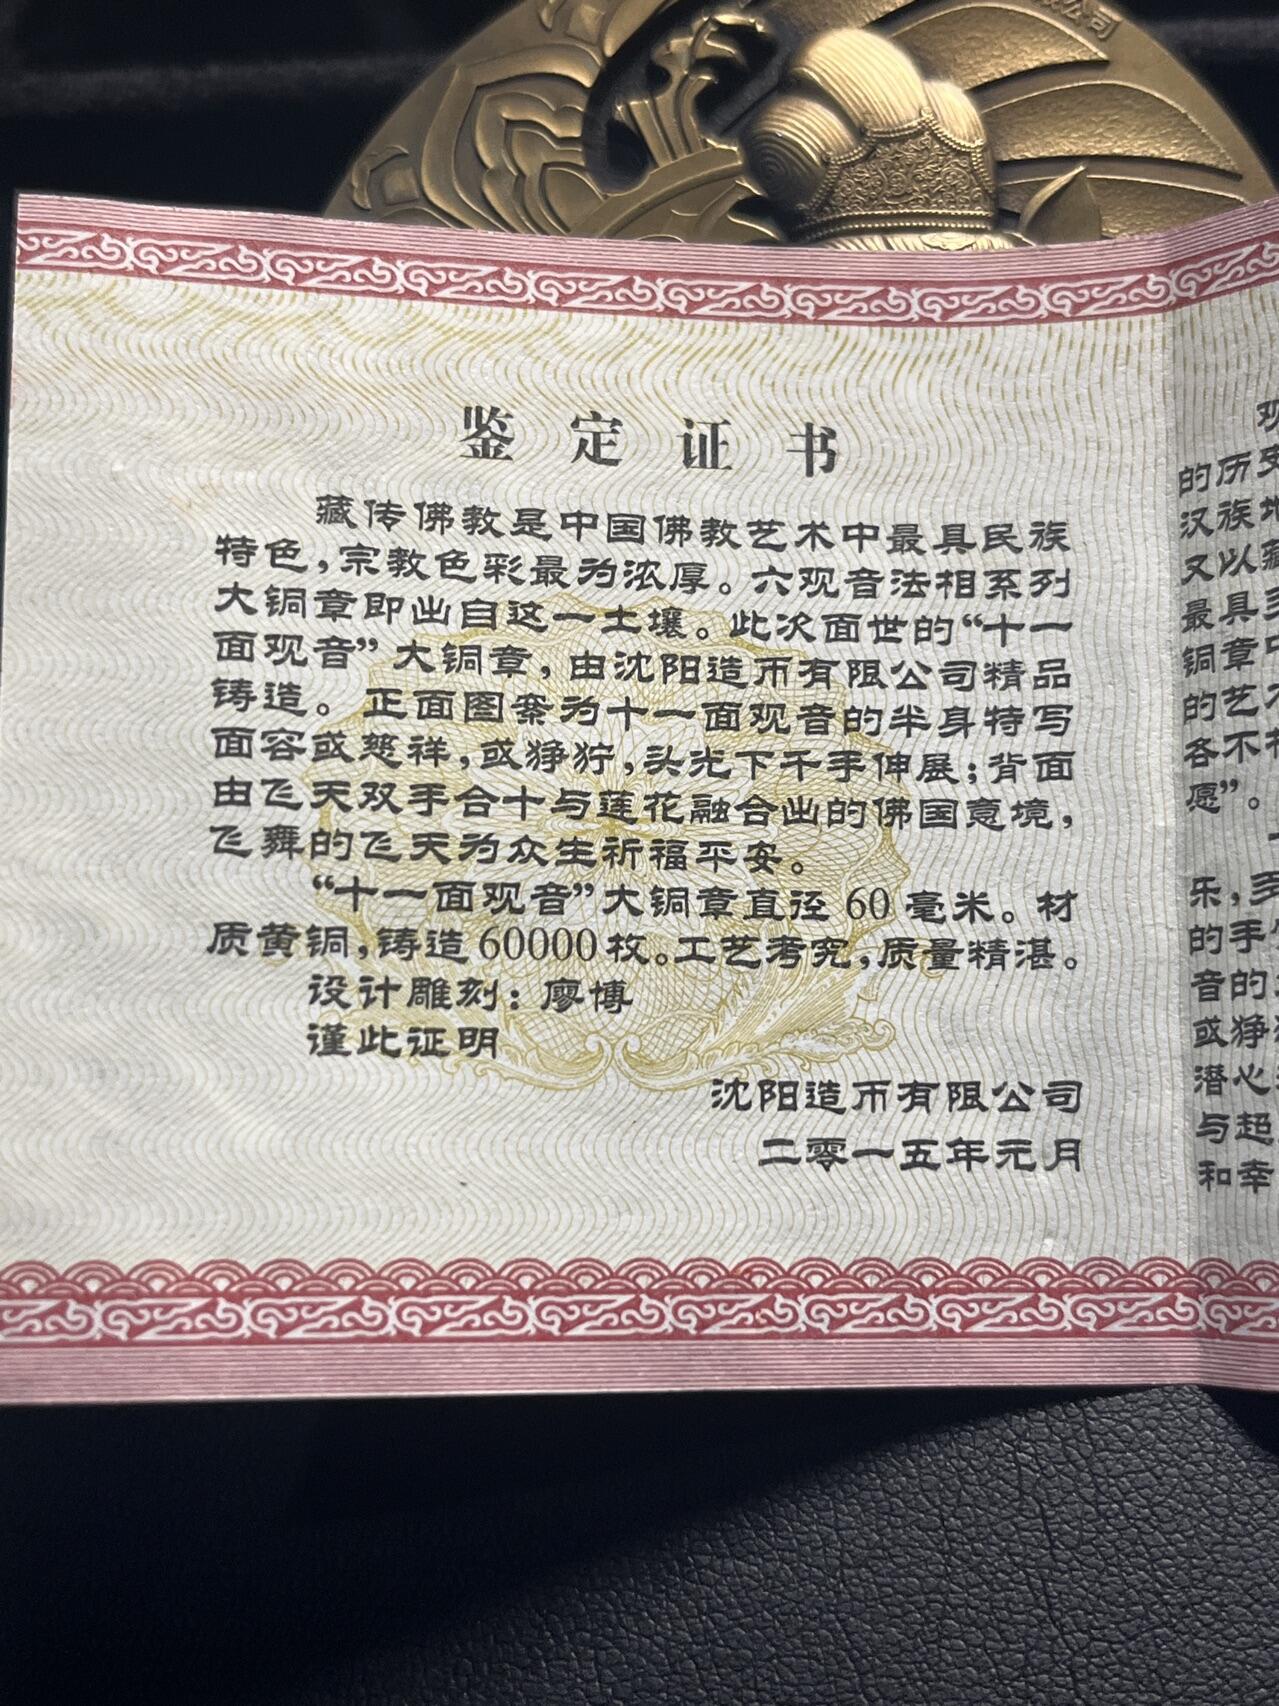 公司
鉴定证书
藏传佛教是中国佛教艺术中最具民族
特色，宗教色彩最为浓厚。六观音法相系列
大铜章即出自这一土壤。此次面世的“十一
面观音”大铜章，由沈阳造币有限公司精品
铸造。正面图案为十一面观音的半身特写
面容或慈祥，或狰狞，头光下千手伸展；背面
由飞天双手合十与莲花融合出的佛国意境，
飞舞的飞天为众生祈福平安。
“十一面观音”大铜章直径60毫米。材
质黄铜，铸造60000枚。工艺考究，质量精湛。
设计雕刻：廖博
谨此证明
沈阳造币有限公司
二零一五年元月
观
的历史
汉族地
又以藏
最具
铜章中
的艺
各不
愿”。
乐，多
的手
音的
或狰
潜心
与超
和幸